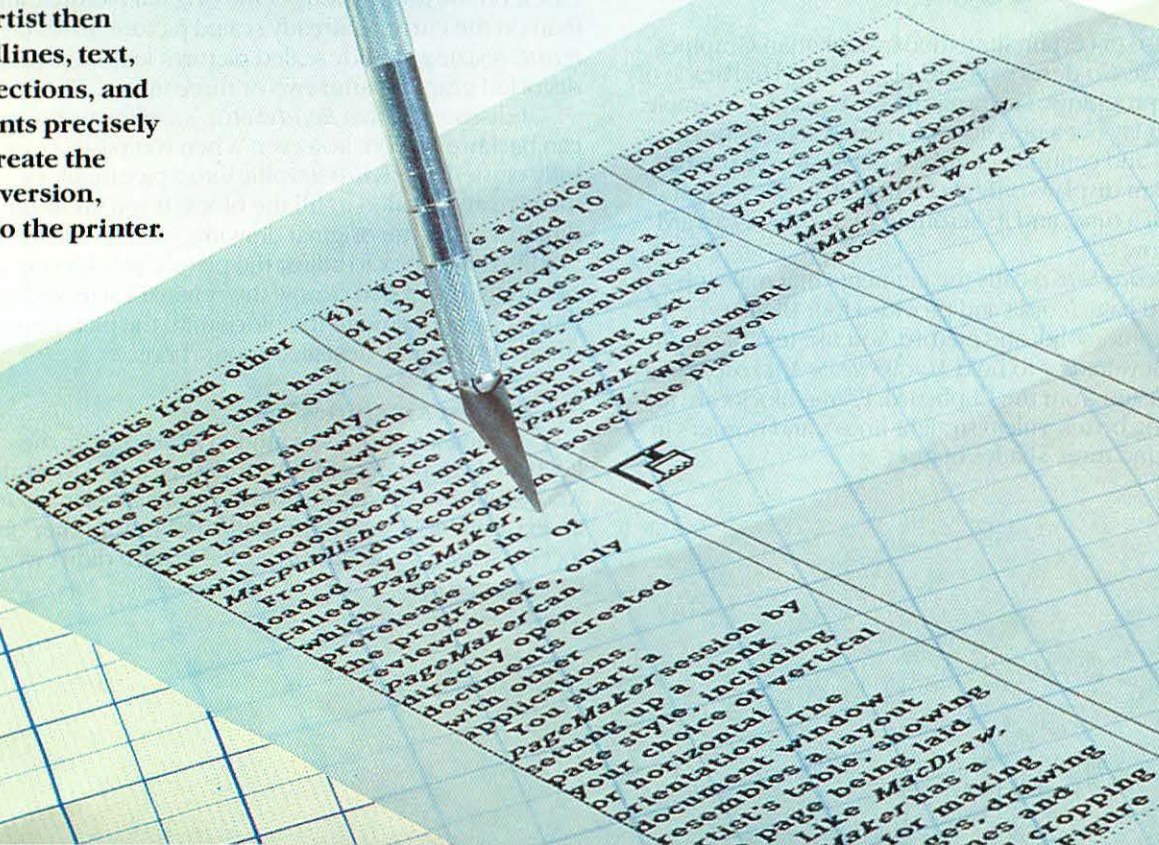 rtist then
dlines, text,
ections, and
nts precisely
reate the
version,
o the printer.
documents from other
programs and in
changing text that has
already been laid out.
The program
runs—though slowly—
on a 128K Mac, which
cannot be used with
the LaserWriter. Still,
its reasonable price
will undoubtedly mak
MacPublisher popular.
From Aldus comes
loaded layout program
called PageMaker,
which I tested in
prerelease form. Of
the programs
reviewed here, only
PageMaker can
directly open
documents created
with other
applications.
You start a
PageMaker session by
setting up a blank
page style, including
your choice of vertical
or horizontal
orientation. The
document window
resembles a layout
rtist's table, showing
page being laid
Like MacDraw,
Maker has a
for making
ges, drawing
nes and
cropping
Figure
4). You e a choice
of 13 ers and 10
fill pa ns. The
prog provides
col guides and a
ru that can be set
ches, icas, centimeters.
mporting text or
raphics into a
PageMaker document
is easy. When you
select the Place
command on the File
menu, a MiniFinder
appears to let you
choose a file that you
can directly paste onto
your layout. The
program can open
MacPaint, MacDraw,
MacWrite, and
Microsoft Word
documents. After